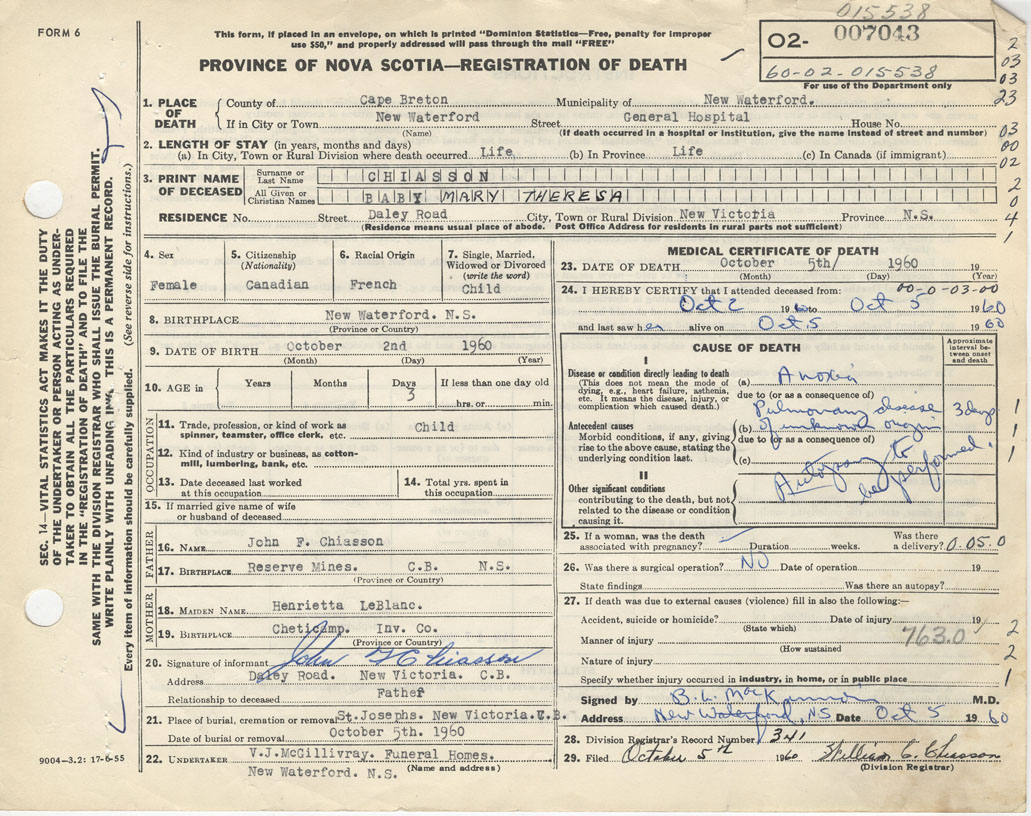 015538
FORM 6
This form, if placed in an envelope, on which is printed "Dominion Statistics—Free, penalty for improper
use $50," and properly addressed will pass through the mail "FREE"
02- 007043
60-02-015538
For use of the Department only
PROVINCE OF NOVA SCOTIA—REGISTRATION OF DEATH
2
03
03
23
03
00
02
2
0
4
1
1. PLACE OF DEATH
County of Cape Breton Municipality of New Waterford.
If in City or Town New Waterford Street General Hospital House No.
(Name) (If death occurred in a hospital or institution, give the name instead of street and number)
2. LENGTH OF STAY (in years, months and days)
(a) In City, Town or Rural Division where death occurred Life (b) In Province Life (c) In Canada (if immigrant)
3. PRINT NAME OF DECEASED
Surname or Last Name CHIASSON
All Given or Christian Names BABY MARY THERESA
RESIDENCE No. Street Daley Road City, Town or Rural Division New Victoria Province N.S.
(Residence means usual place of abode. Post Office Address for residents in rural parts not sufficient)
4. Sex
Female
5. Citizenship (Nationality)
Canadian
6. Racial Origin
French
7. Single, Married, Widowed or Divorced (write the word)
Child
8. BIRTHPLACE New Waterford. N.S.
(Province or Country)
9. DATE OF BIRTH October 2nd 1960
(Month) (Day) (Year)
10. AGE in Years Months Days If less than one day old
3 hrs. or min.
OCCUPATION
11. Trade, profession, or kind of work as spinner, teamster, office clerk, etc. Child
12. Kind of industry or business, as cotton-mill, lumbering, bank, etc.
13. Date deceased last worked at this occupation
14. Total yrs. spent in this occupation
15. If married give name of wife or husband of deceased
FATHER
16. NAME John F. Chiasson
17. BIRTHPLACE Reserve Mines. C.B. N.S.
(Province or Country)
MOTHER
18. MAIDEN NAME Henrietta LeBlanc.
19. BIRTHPLACE Cheticamp. Inv. Co.
(Province or Country)
20. Signature of informant John F Chiasson
Address Daley Road. New Victoria. C.B.
Relationship to deceased Father
21. Place of burial, cremation or removal St. Josephs. New Victoria. C.B.
Date of burial or removal October 5th. 1960
22. UNDERTAKER V.J.McGillivray. Funeral Homes.
New Waterford. N.S. (Name and address)
MEDICAL CERTIFICATE OF DEATH
23. DATE OF DEATH October 5th/ 1960 19
(Month) (Day) (Year)
24. I HEREBY CERTIFY that I attended deceased from: 00-0-03-00
Oct 2 19 to Oct 5 1960
and last saw her alive on Oct 5 1960
CAUSE OF DEATH
Approximate interval between onset and death
I
Disease or condition directly leading to death
(This does not mean the mode of dying, e.g., heart failure, asthenia, etc. It means the disease, injury, or complication which caused death.)
(a) Anoxia
due to (or as a consequence of)
Antecedent causes
Morbid conditions, if any, giving rise to the above cause, stating the underlying condition last.
(b) Pulmonary disease of unknown origin 3 days
due to (or as a consequence of)
(c)
II
Other significant conditions
contributing to the death, but not related to the disease or condition causing it.
Autopsy to be performed.
1
1
1
25. If a woman, was the death associated with pregnancy? Duration weeks. Was there a delivery? 0.05.0
26. Was there a surgical operation? NO Date of operation 19
State findings Was there an autopsy?
27. If death was due to external causes (violence) fill in also the following:—
Accident, suicide or homicide? Date of injury 19
(State which)
Manner of injury 763.0
(How sustained
Nature of injury
Specify whether injury occurred in industry, in home, or in public place
2
2
1
Signed by M.D.
Address New Waterford, NS Date Oct 5 1960
28. Division Registrar's Record Number 341
29. Filed October 5th 1960 William C. Chiasson
(Division Registrar)
SEC. 14—VITAL STATISTICS ACT MAKES IT THE DUTY
OF THE UNDERTAKER OR PERSON ACTING AS UNDER-
TAKER TO OBTAIN ALL THE PARTICULARS REQUIRED
IN THE "REGISTRATION OF DEATH" AND TO FILE THE
SAME WITH THE DIVISION REGISTRAR WHO SHALL ISSUE THE BURIAL PERMIT.
WRITE PLAINLY WITH UNFADING INK. THIS IS A PERMANENT RECORD.
Every item of information should be carefully supplied. (See reverse side for instructions.)
9004—3.2: 17-6-55